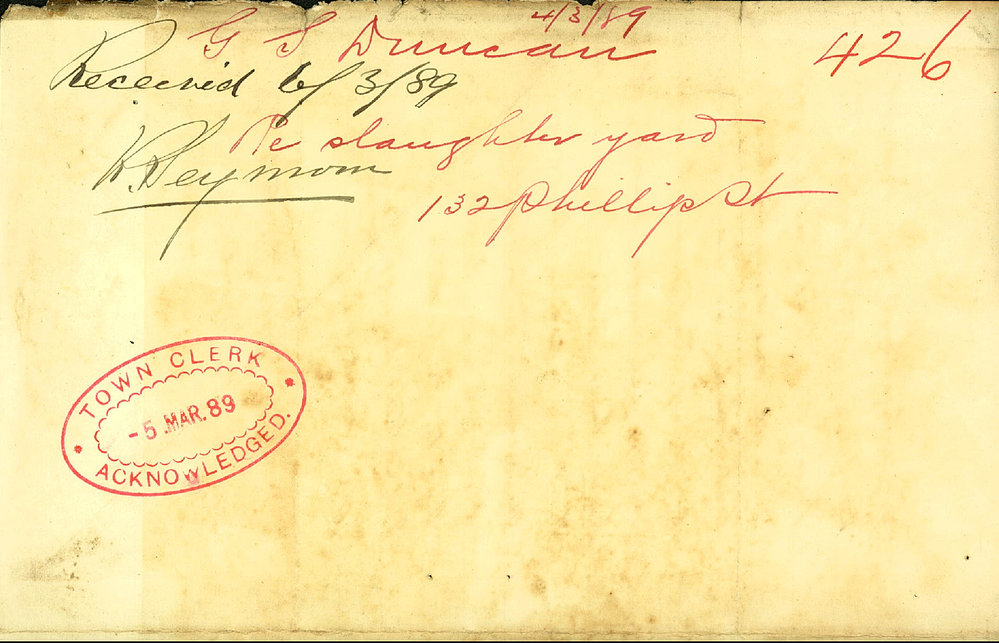 4/3/89
G S Duncan
426
Received 6/3/89
Re slaughter yard
R. Seymour
132 Phillip St
TOWN CLERK
- 5 MAR. 89
ACKNOWLEDGED.